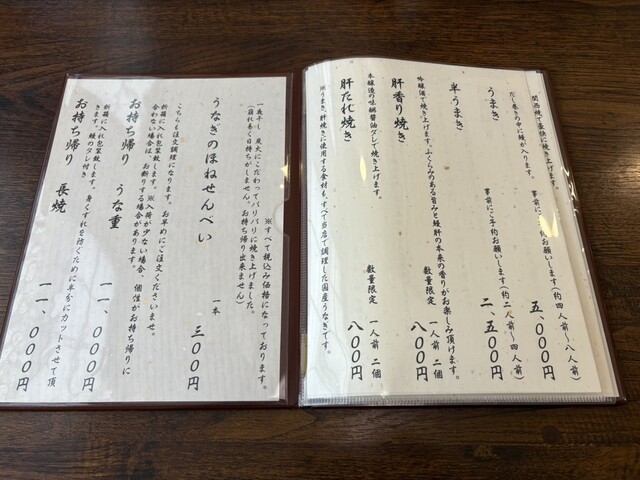 関西焼で豪快に焼き上げます。
うまき
五、〇〇〇円
だし巻きの中に鰻が入ります。
事前にご予約お願いします(約四人前〜八人前)
半うまき
二、五〇〇円
事前にご予約お願いします(約二人前〜四人前)
肝香り焼き
数量限定 一人前 二個 八〇〇円
吟醸酒で焼き上げます。ふくらみのある旨みと鰻肝の本来の香りがお楽しみ頂けます。
肝たれ焼き
数量限定 一人前 二個 八〇〇円
本醸造の味醂醤油ダレで焼き上げます。
※うまき、肝焼きに使用する食材も、すべて当店で調理した国産うなぎです。
※すべて税込み価格になっております。
うなぎのほねせんべい
一本 三〇〇円
一夜干し 炭火にこだわってパリパリに焼き上げました。
(崩れ易く日持ちがしません。お持ち帰り出来ません)
こちらも注文調理になります。お早めにご注文くださいませ。
お持ち帰り うな重
一一、〇〇〇円
折箱に入れ包装致します。※入荷が少ない場合、個性がお持ち帰りに
合わない場合は、お断りする場合があります。
お持ち帰り 長焼
一一、〇〇〇円
折箱に入れ包装致します。身くずれを防ぐために半分にカットさせて頂
きます。鰻のタレ付き